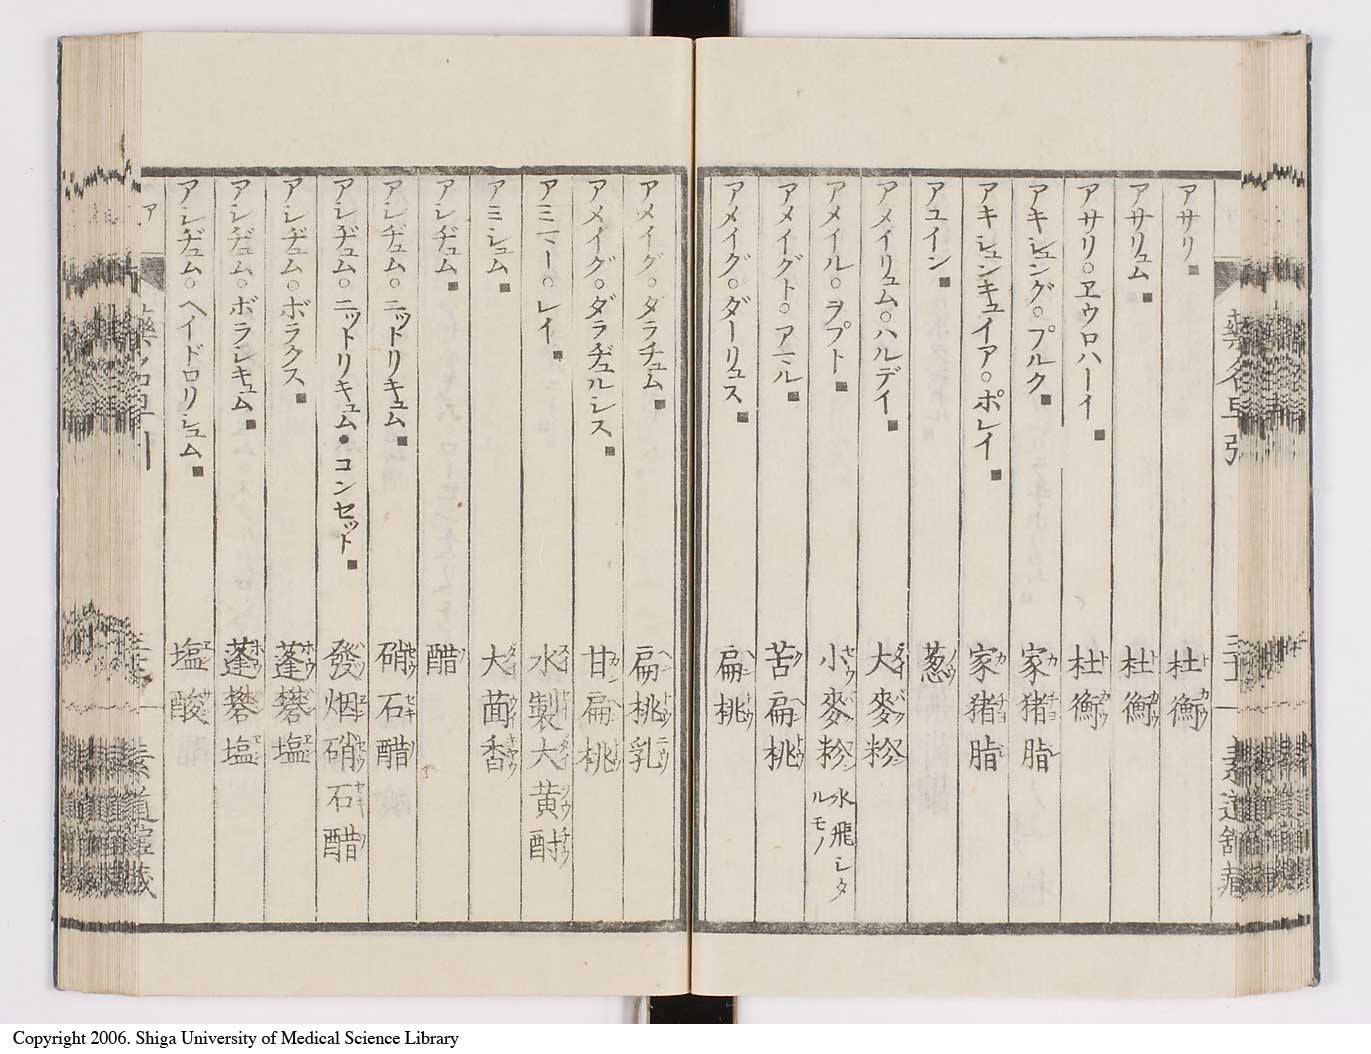 アサリ■ 杜衡
アサリュム■ 杜衡
アサリ○ヱウロハーイ■ 杜衡
アキシュング○プルク■ 家猪脂
アキシュンキュイア○ポレイ■ 家猪脂
アユイン■ 葱
アメイリュム○ハルデイ■ 大麥粉
アメイル○ヲプト■ 小麥粉 水飛シタルモノ
アメイグト○アミル■ 苦扁桃
アメイグ○ダーリュス■ 扁桃
アメイグ○ダラチュム■ 扁桃乳
アメイグ○ダラヂュルレス■ 甘扁桃
アミニー○レイ■ 水製大黄酎
アミシュム■ 大茴香
アシヂュム■ 醋
アシヂュム○ニットリキュム■ 硝石醋
アシヂュム○ニットリキュム●コンセット■ 發烟硝石醋
アシヂュム○ボラクス■ 蓬礬塩
アシヂュム○ボラレキュム■ 蓬礬塩
アシヂュム○ヘイドロリシュム■ 塩酸
Copyright 2006. Shiga University of Medical Science Library